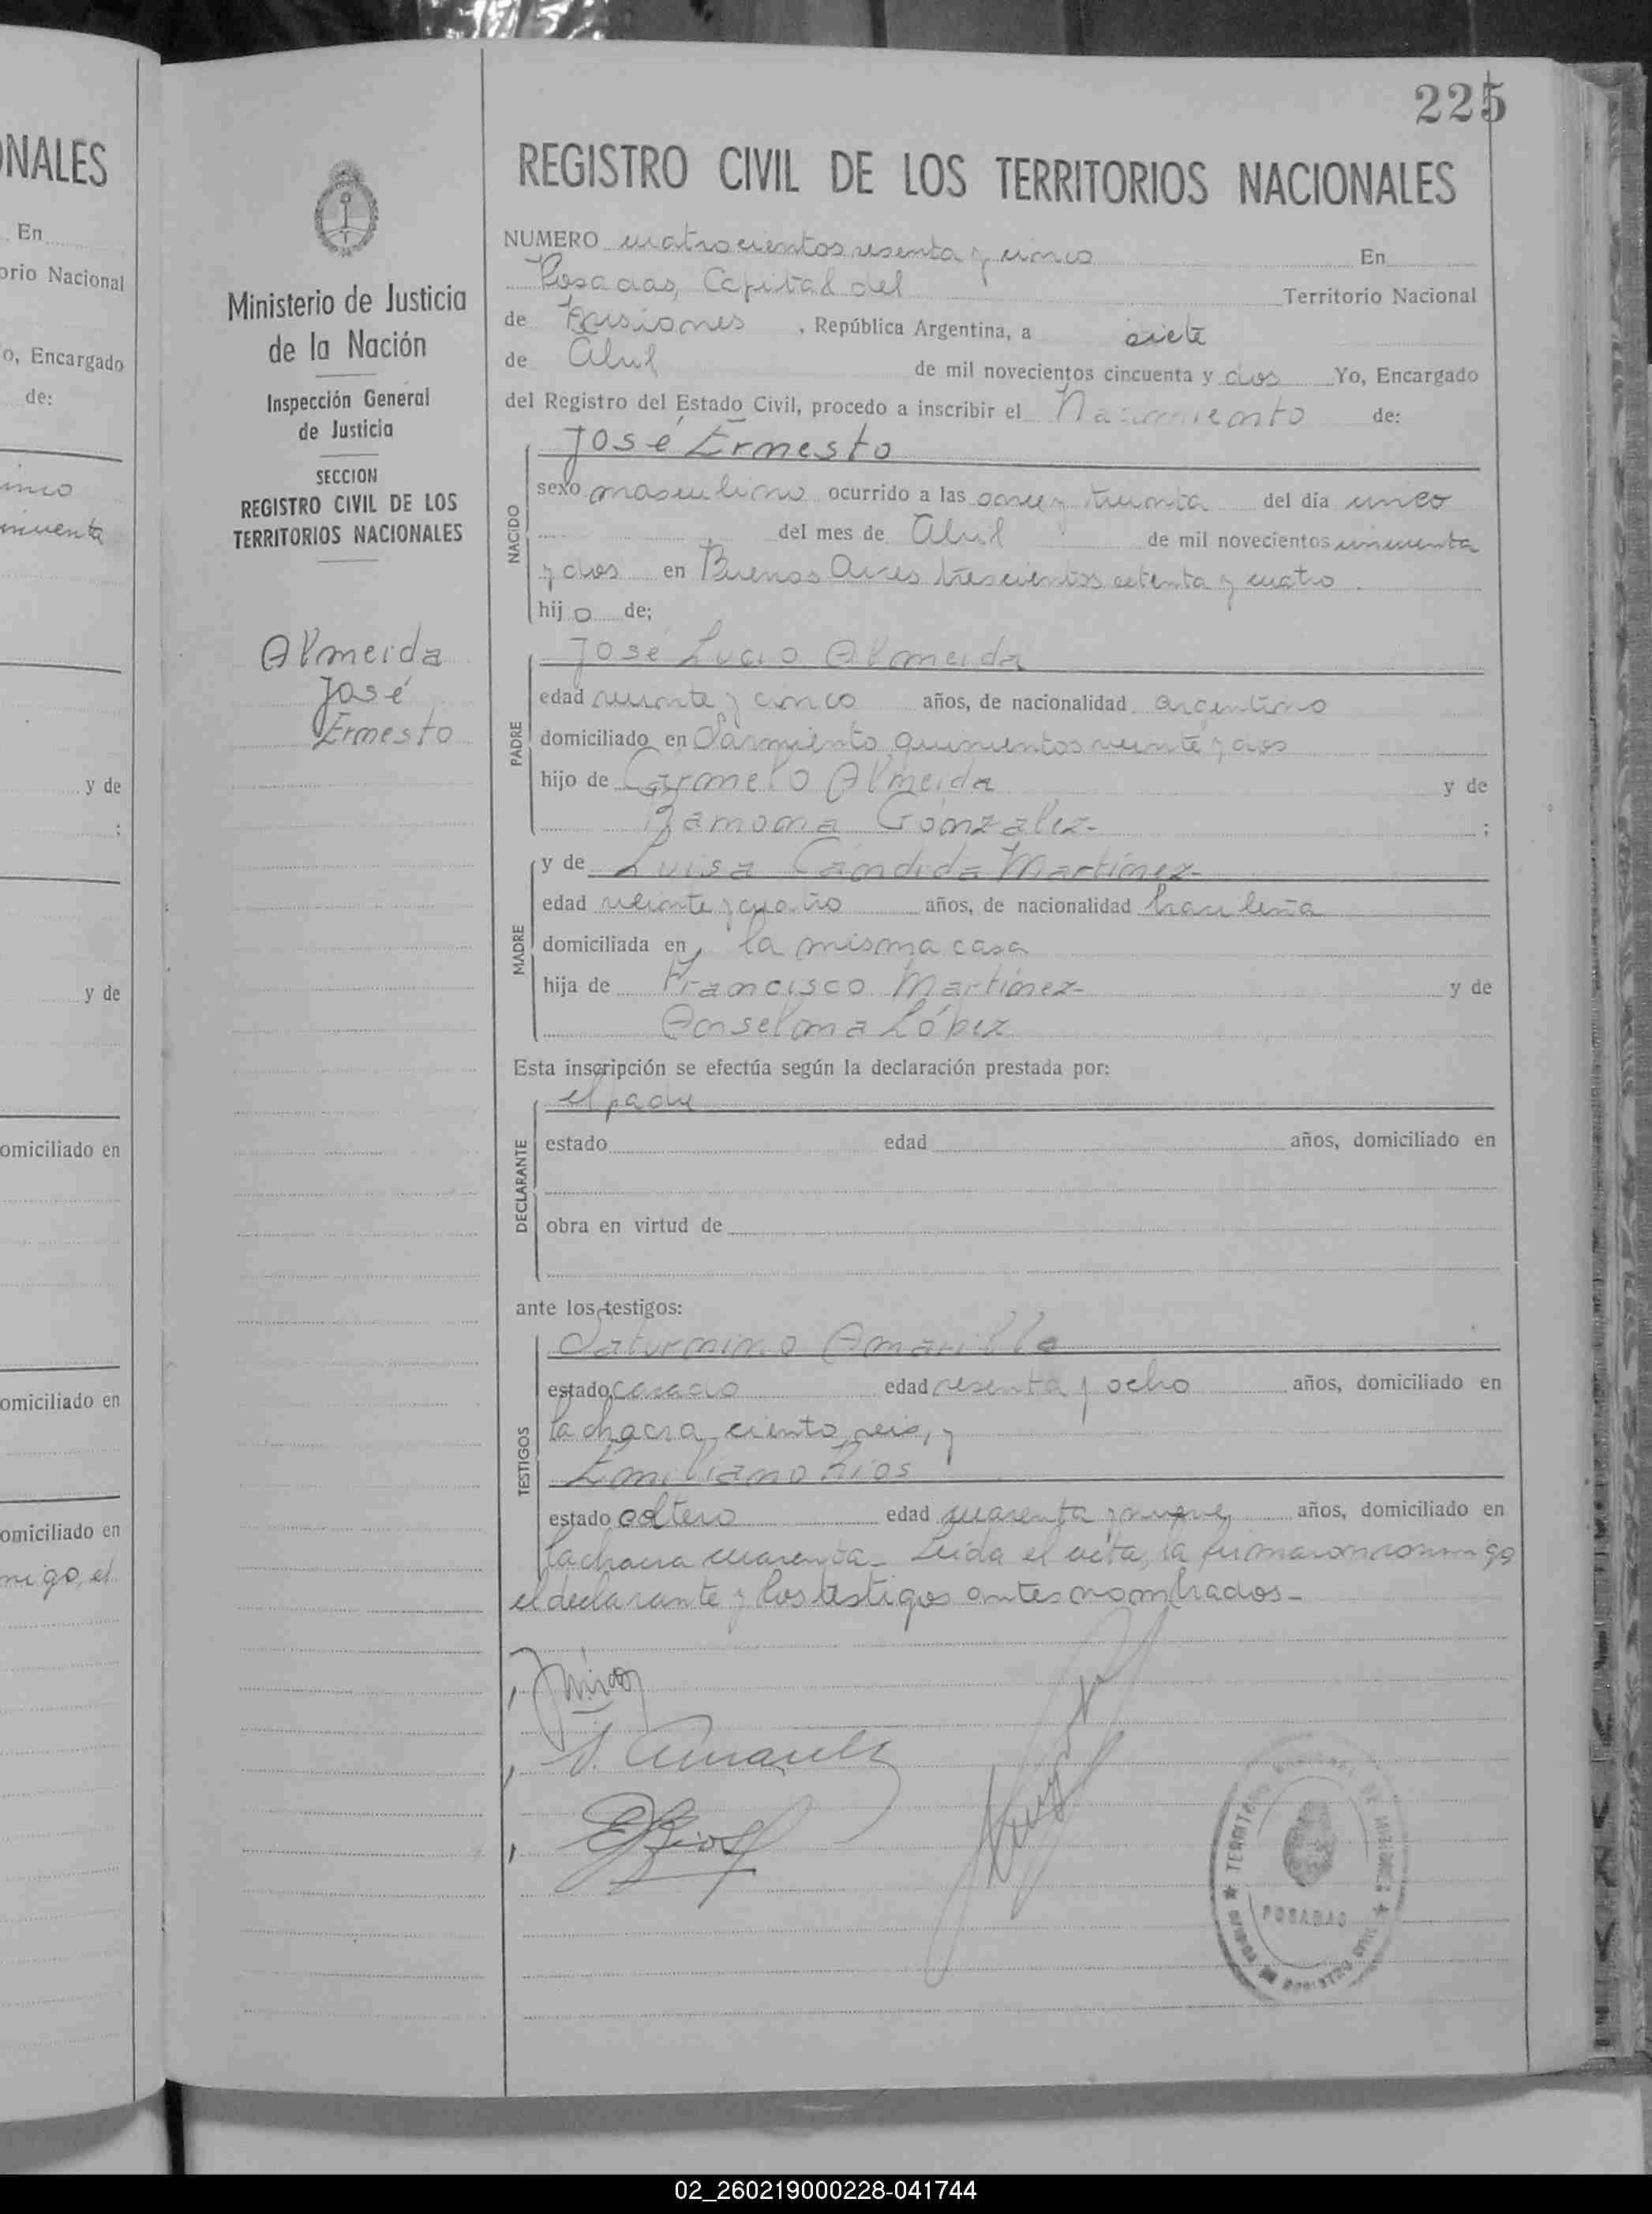 225
ONALES
En
orio Nacional
o, Encargado
de:
cinco
cincuenta
y de
;
y de
omiciliado en
omiciliado en
omiciliado en
migo, el
Ministerio de Justicia
de la Nación
Inspección General
de Justicia
SECCION
REGISTRO CIVIL DE LOS
TERRITORIOS NACIONALES
Almeida
José
Ernesto
REGISTRO CIVIL DE LOS TERRITORIOS NACIONALES
NUMERO cuatrocientos sesenta y cinco En
Posadas, Capital del Territorio Nacional
de Misiones , República Argentina, a siete
de Abril de mil novecientos cincuenta y dos Yo, Encargado
del Registro del Estado Civil, procedo a inscribir el Nacimiento de:
José Ernesto
NACIDO
sexo masculino ocurrido a las once y treinta del día cinco
del mes de Abril de mil novecientos cincuenta
y dos en Buenos Aires trescientos setenta y cuatro.
hij o de;
José Lucio Almeida
PADRE
edad veinte y cinco años, de nacionalidad argentino
domiciliado en Sarmiento quinientos veinte y dos
hijo de Carmelo Almeida y de
Ramona González- ;
y de Luisa Cándida Martínez-
MADRE
edad veinte y cuatro años, de nacionalidad brasileña
domiciliada en la misma casa
hija de Francisco Martínez- y de
Anselma López
Esta inscripción se efectúa según la declaración prestada por:
el padre
DECLARANTE
estado edad años, domiciliado en
obra en virtud de
ante los testigos:
Saturnino Amarilla
TESTIGOS
estado casado edad sesenta y ocho años, domiciliado en
la chacra ciento seis, y
Emiliano Ríos
estado soltero edad cuarenta y nueve años, domiciliado en
la chacra cuarenta- Leída el acta, la firmaron conmigo
el declarante y los testigos antes nombrados-
S. Amarilla
E Rios
TERRITORIO NACIONAL DE MISIONES
POSADAS
REGISTRO CIVIL
02_260219000228-041744